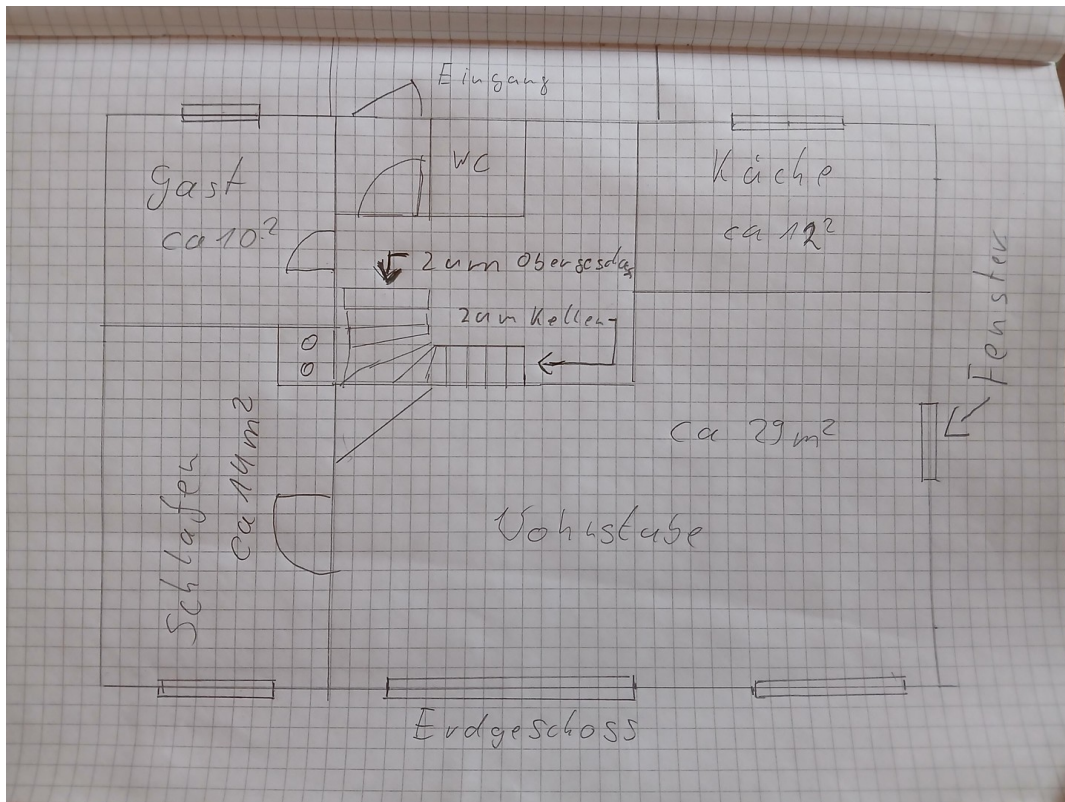 Eingang
WC
Gast
ca 10²
Küche
ca 12²
zum Obergeschoss
zum Keller
Fenster
ca 29 m²
Schlafen
ca 14 m²
Wohnstube
Erdgeschoss